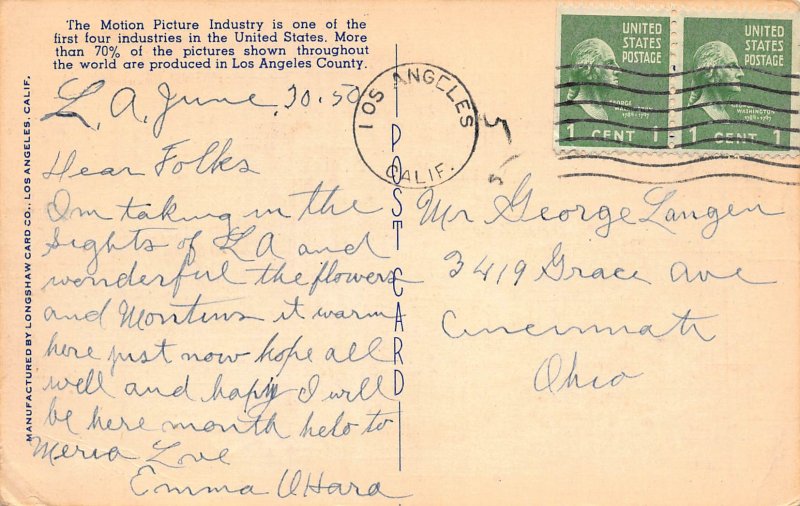 The Motion Picture Industry is one of the
first four industries in the United States. More
than 70% of the pictures shown throughout
the world are produced in Los Angeles County.
L. A. June, 30. 50
Dear Folks
Im taking in the
sights of LA and
wonderful the flowers
and Montins it warm
here just now hope all
well and happy I will
be here month helo to
Meria Love
Emma OHara
MANUFACTURED BY LONGSHAW CARD CO., LOS ANGELES, CALIF.
POST CARD
LOS ANGELES
CALIF.
UNITED
STATES
POSTAGE
GEORGE
WASHINGTON
1789-1797
1 CENT 1
UNITED
STATES
POSTAGE
GEORGE
WASHINGTON
1789-1797
1 CENT 1
Mr George Langen
3419 Grace ave
Cincinnati
Ohio